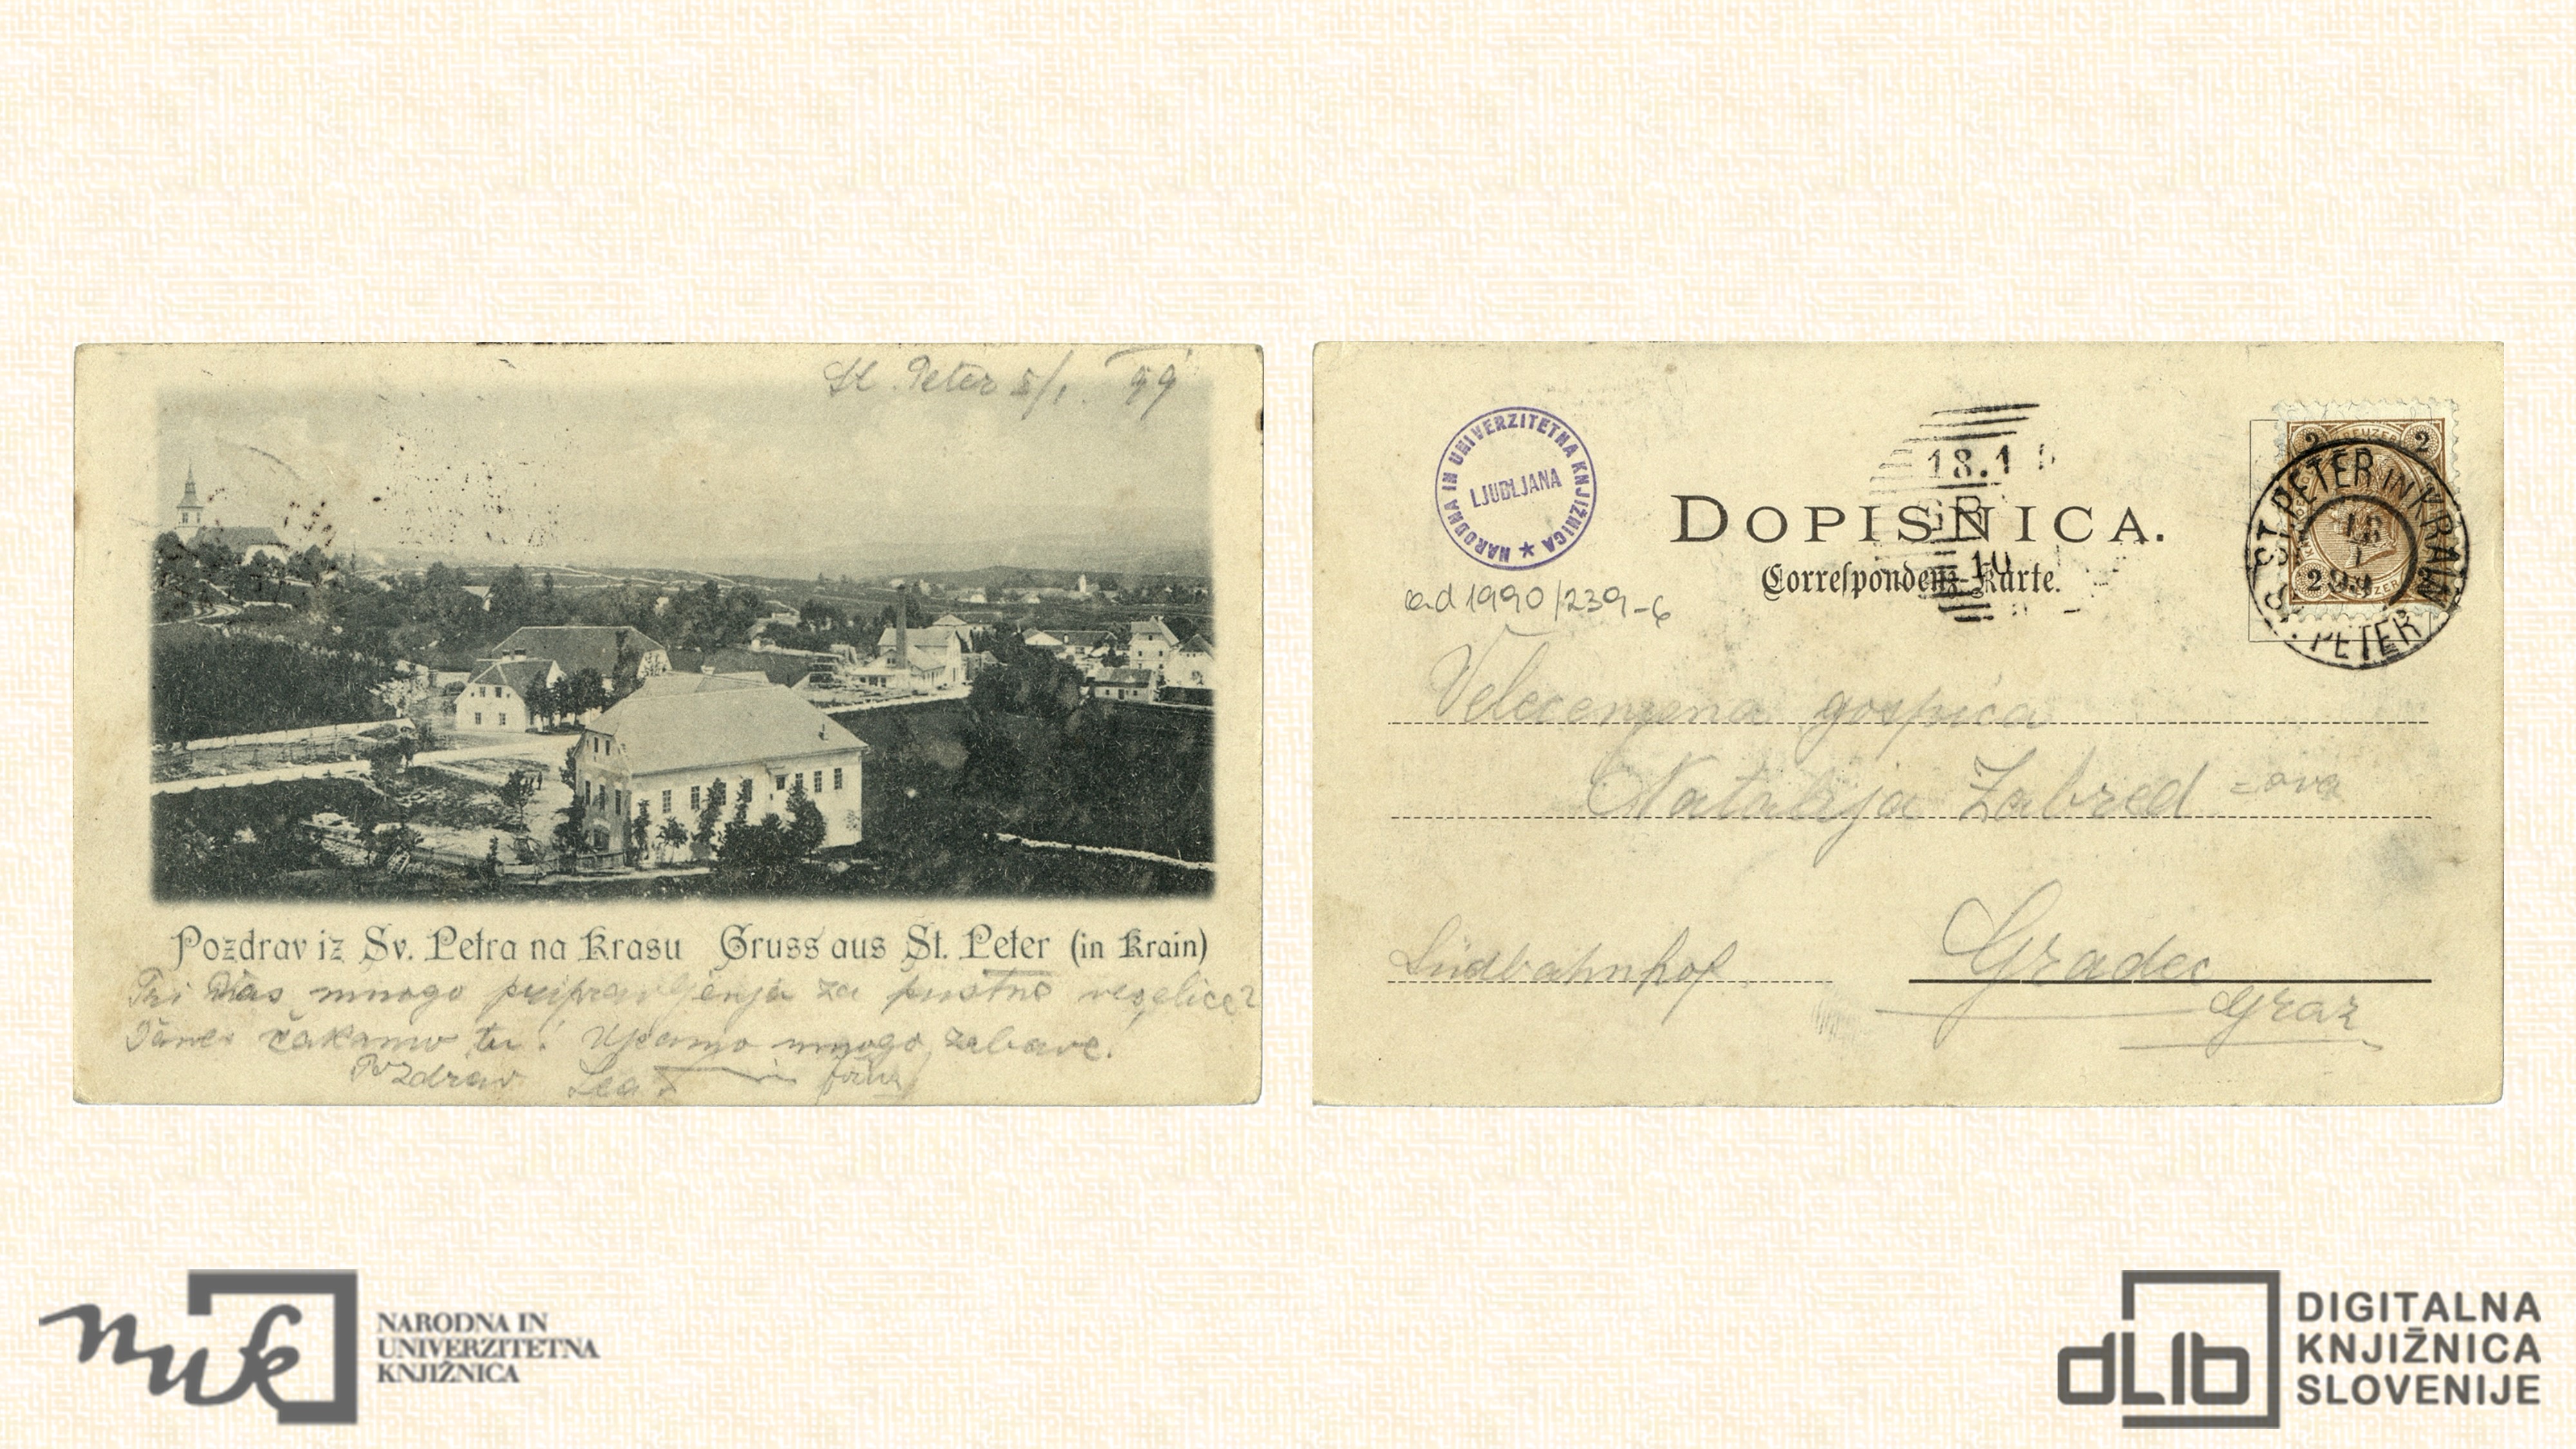 St. Peter 5/1. 99
Pozdrav iz Sv. Petra na Krasu Gruss aus St. Peter (in Krain)
Pri Vas mnogo pripravljenja za pustne veselice?
čakamo tu! Upamo mnogo zabave!
Pozdrav
NARODNA IN UNIVERZITETNA KNJIŽNICA
LJUBLJANA
18.1
DOPISNICA.
Correspondenz-Karte.
10
2 2
ST. PETER IN KRAIN
ST. PETER
ad 1990/239-6
Velecenjena gospica
Natalija Zabred =ova
Südbahnhof
Gradec
Graz
nuk
NARODNA IN
UNIVERZITETNA
KNJIŽNICA
dLib
DIGITALNA
KNJIŽNICA
SLOVENIJE